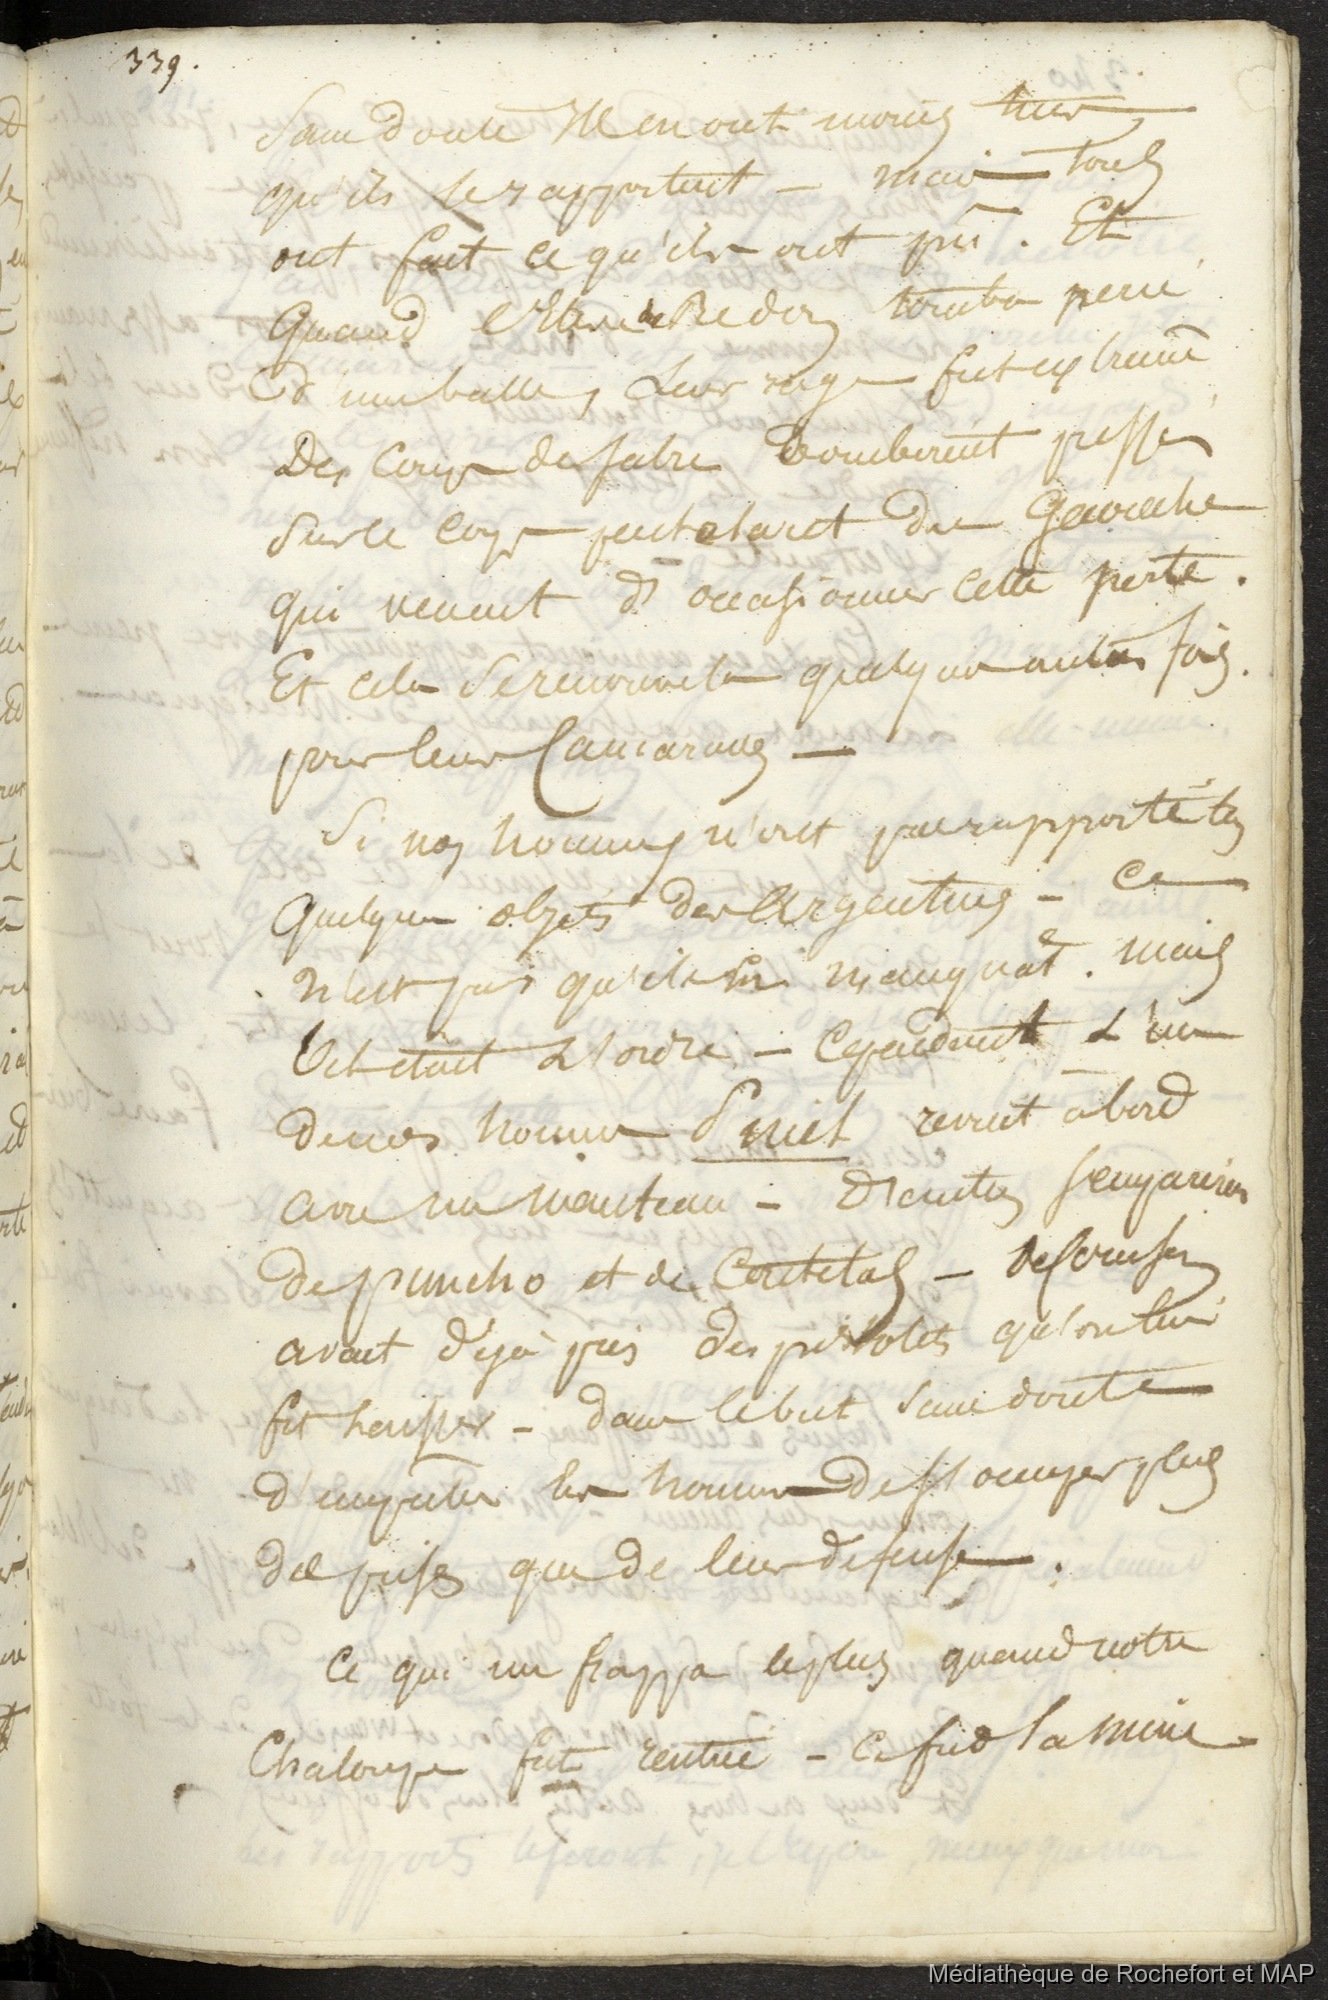 339.
Sans doute Ils en ont moins tués
qu'ils le rapportent — mais tous
ont fait ce qu'ils ont pu. Et
quand l'Elève de Redon tomba percé
d'une balle, Leur rage fut extreme
Des coups de sabre tomberent pressés
sur le corps du Gaucho
qui venait d'occasionner cette perte.
Et cela se renouvela quelques autres fois.
pour leurs Camarades —
Si nos hommes n'ont pas rapporté les
quelques objets des Argentins — ce
n'est pas qu'il en manquat. mais
tel etait L'ordre — Cependant L'un
de nos hommes revint à bord
avec un manteau — D'autres s'emparèrent
de puncho et de — 
avait déjà pris des pistolets qu'on lui
fit laisser — dans le but sans doute
d'empêcher les hommes de s'occuper plus
de prises que de leur defense.
Ce qui me frappa le plus quand notre
Chaloupe fut rentrée — ce fut la mine
Médiathèque de Rochefort et MAP